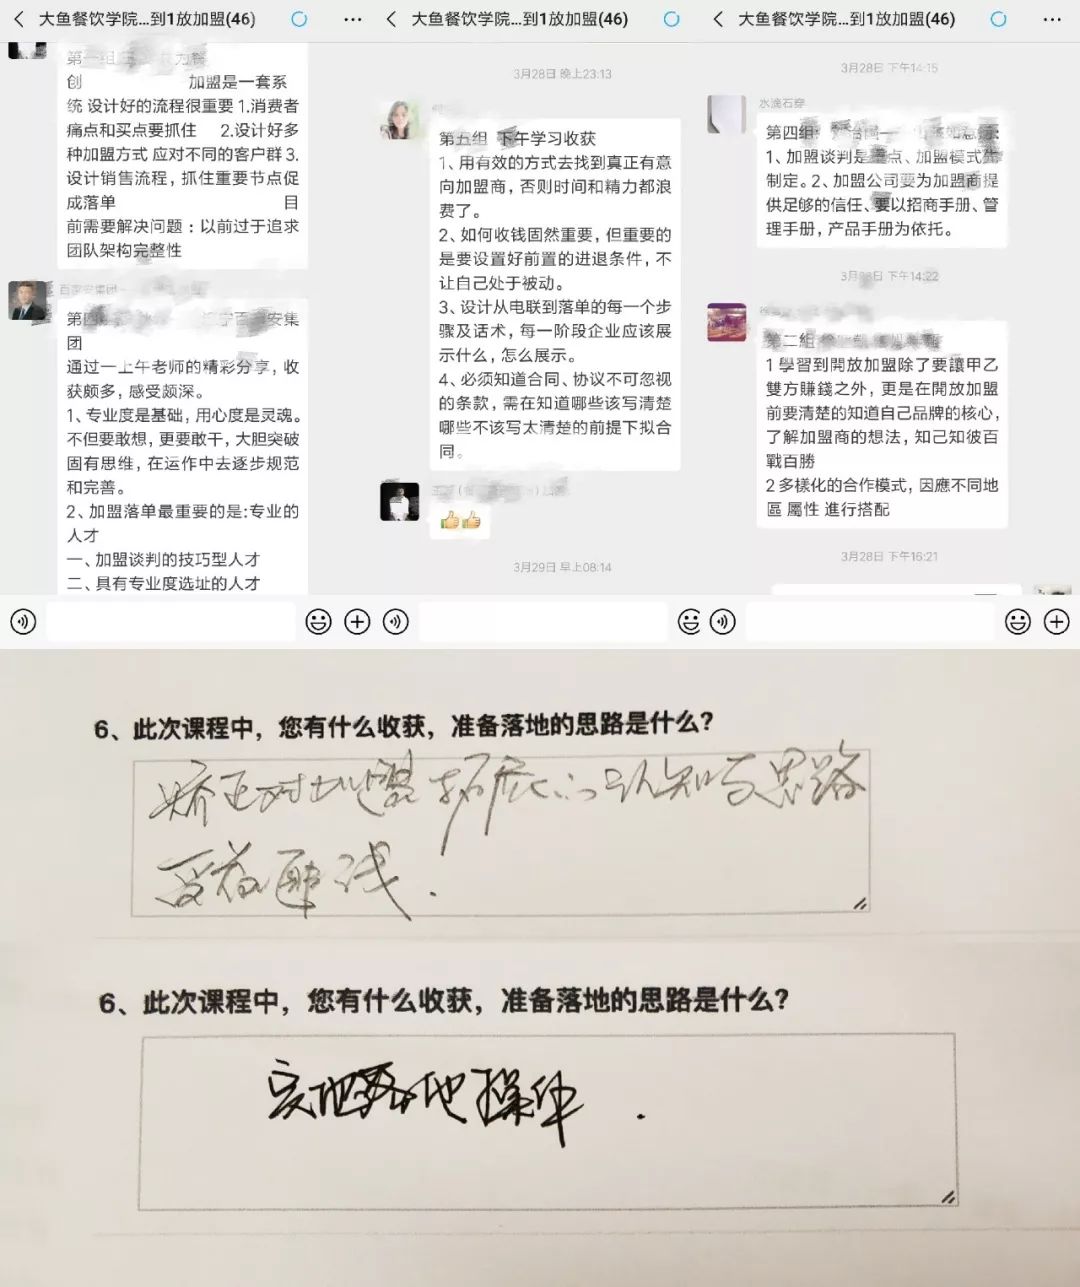 大鱼餐饮学院...到1放加盟(46)
第一组
创 加盟是一套系
统 设计好的流程很重要 1.消费者
痛点和买点要抓住 2.设计好多
种加盟方式 应对不同的客户群 3.
设计销售流程，抓住重要节点促
成落单 目
前需要解决问题：以前过于追求
团队架构完整性
百家安集团
第四
团
通过一上午老师的精彩分享，收
获颇多，感受颇深。
1、专业度是基础，用心度是灵魂。
不但要敢想，更要敢干，大胆突破
固有思维，在运作中去逐步规范
和完善。
2、加盟落单最重要的是:专业的
人才
一、加盟谈判的技巧型人才
二、具有专业度选址的人才
大鱼餐饮学院...到1放加盟(46)
3月28日 晚上23:13
第五组 下午学习收获
1、用有效的方式去找到真正有意
向加盟商，否则时间和精力都浪
费了。
2、如何收钱固然重要，但重要的
是要设置好前置的进退条件，不
让自己处于被动。
3、设计从电联到落单的每一个步
骤及话术，每一阶段企业应该展
示什么，怎么展示。
4、必须知道合同、协议不可忽视
的条款，需在知道哪些该写清楚
哪些不该写太清楚的前提下拟合
同。
3月29日 早上08:14
大鱼餐饮学院...到1放加盟(46)
3月28日 下午14:15
水滴石穿
第四组:
1、加盟谈判是重点、加盟模式先
制定。2、加盟公司要为加盟商提
供足够的信任、要以招商手册、管
理手册，产品手册为依托。
3月28日 下午14:22
第二組
1 學習到開放加盟除了要讓甲乙
雙方賺錢之外，更是在開放加盟
前要清楚的知道自己品牌的核心，
了解加盟商的想法，知己知彼百
戰百勝
2 多樣化的合作模式，因應不同地
區 屬性 進行搭配
3月28日 下午16:21
6、此次课程中，您有什么收获，准备落地的思路是什么？
矫正对加盟拓展的认知与思路
受益匪浅.
6、此次课程中，您有什么收获，准备落地的思路是什么？
实地落地操作.